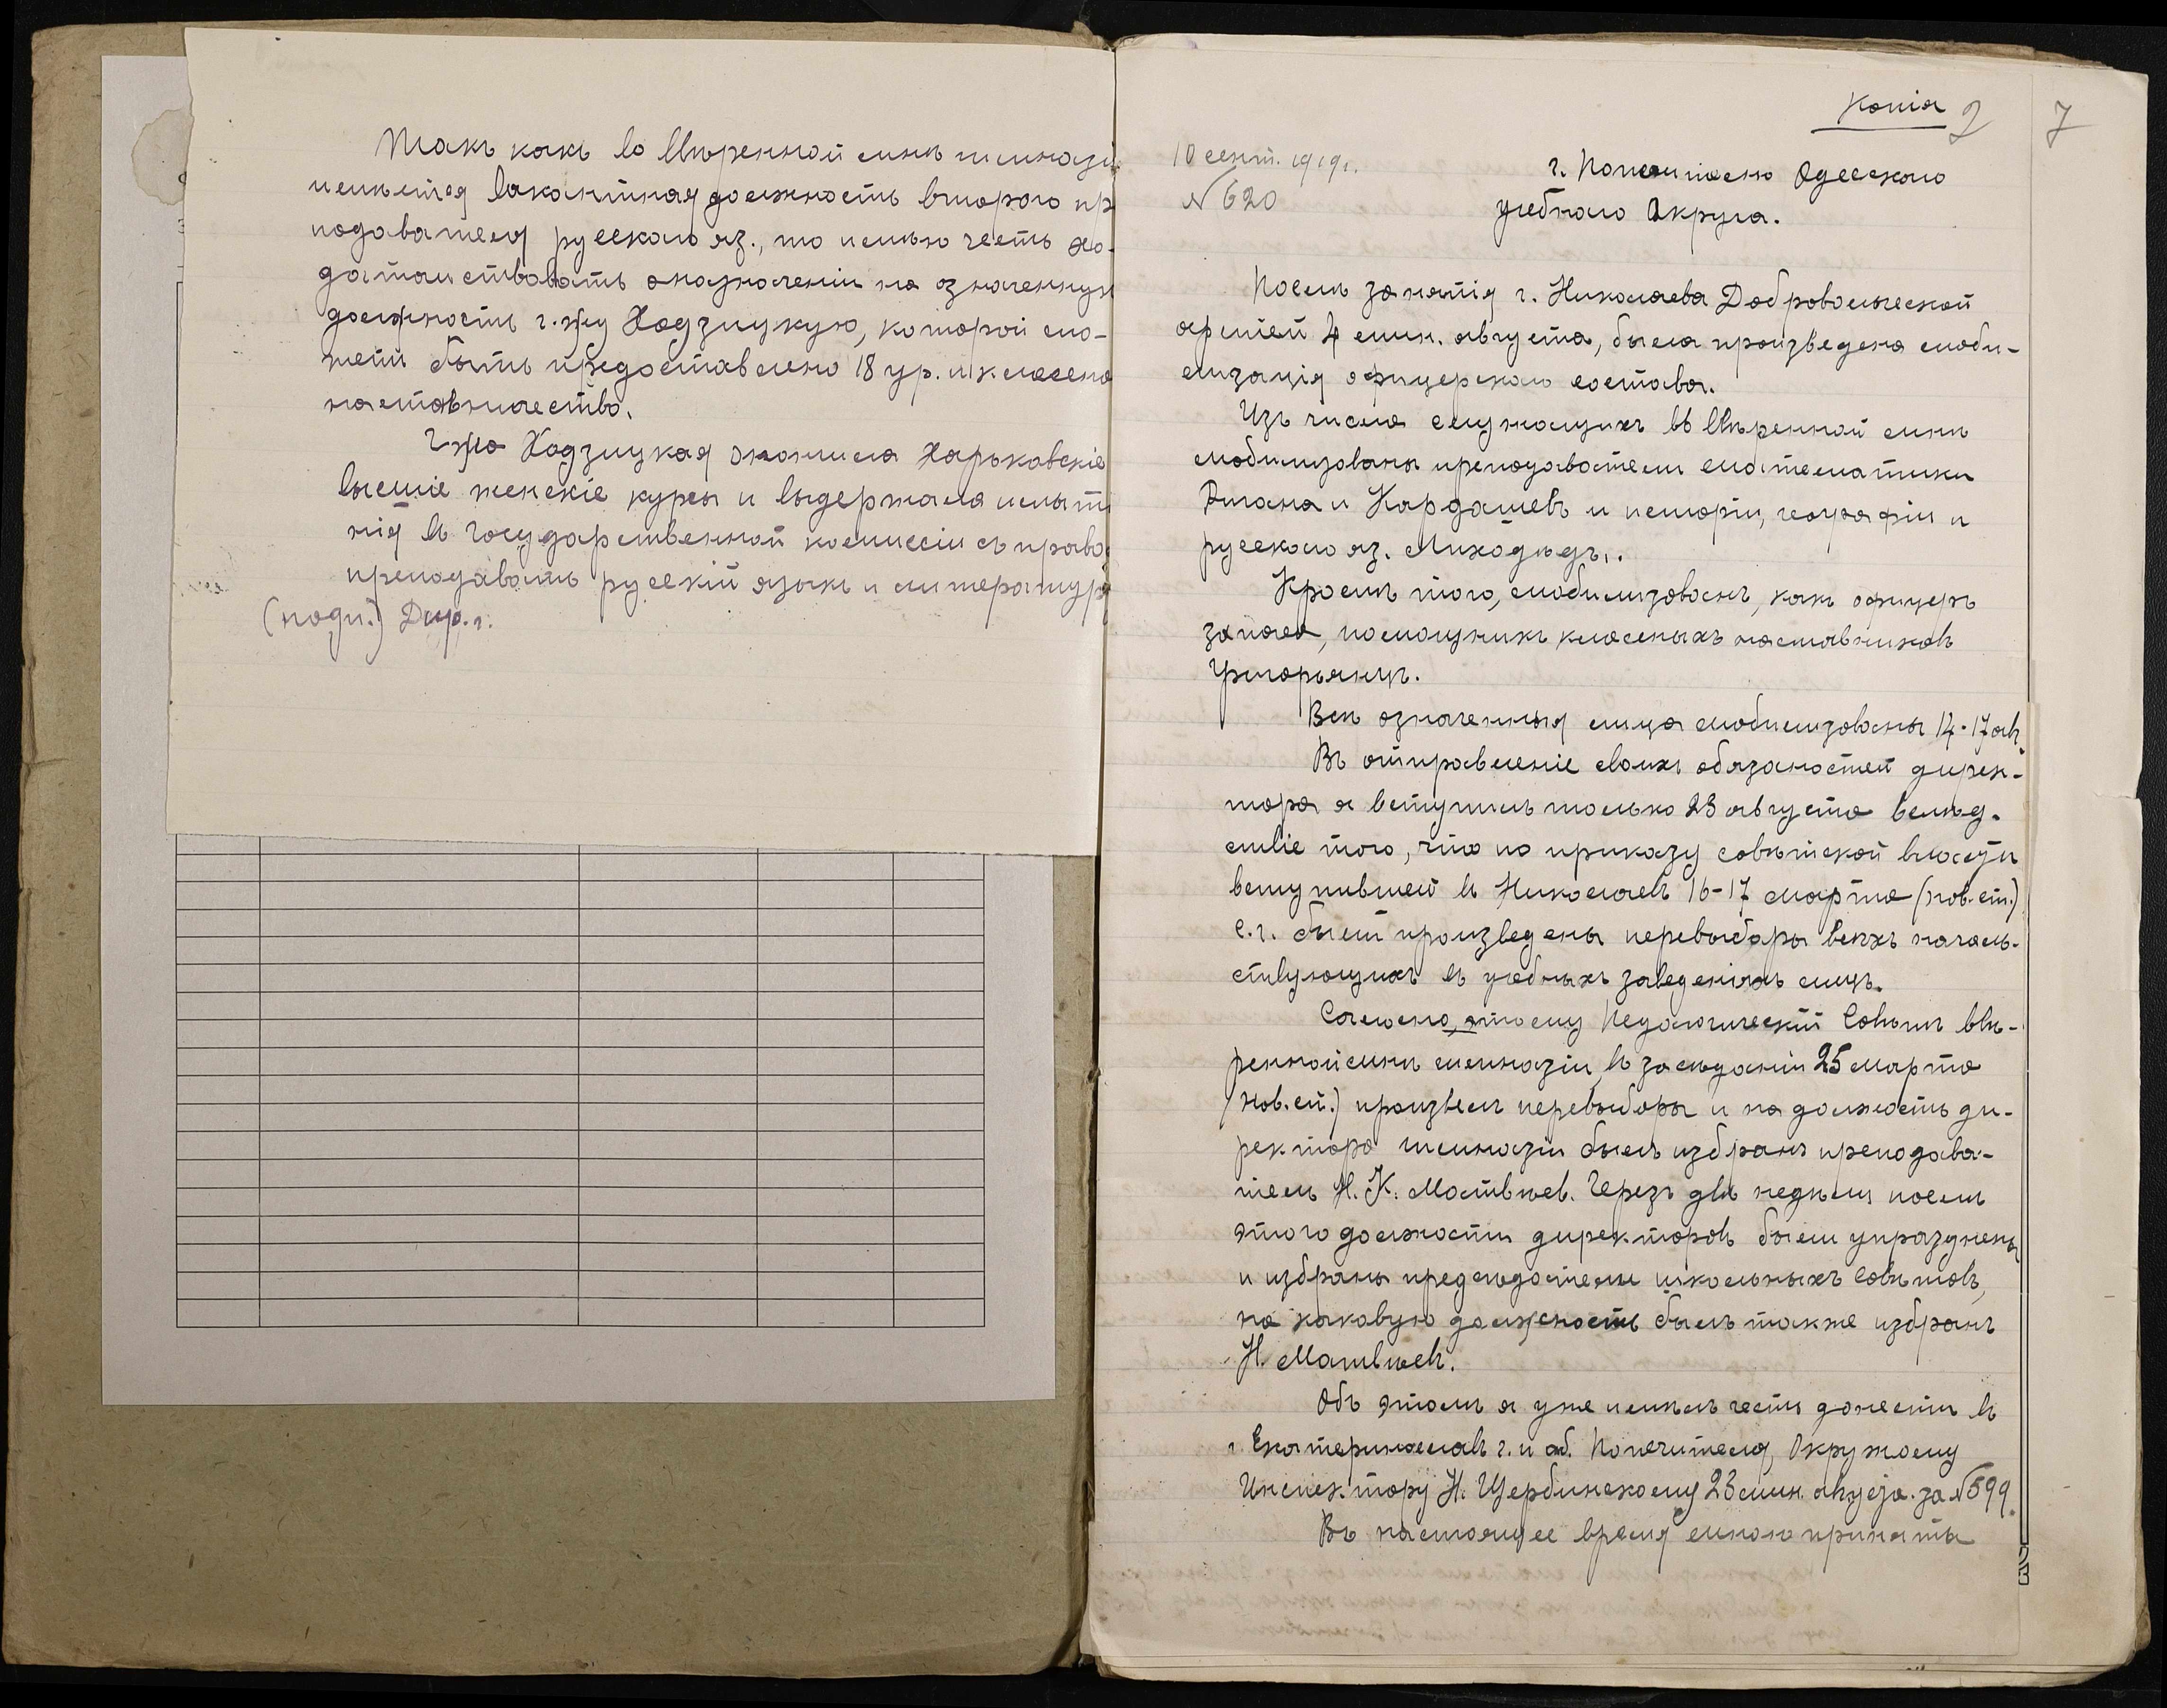 Такъ какъ во ввѣренной мнѣ гимназі
имѣется вакантная должность второго пр
подавателя русскаго яз., то имѣю честь хо-
датайствовать о назначеніи на означенную
должность г-жу Ходзицкую, которой мо-
жетъ быть предоставлено 18 ур. и классно
наставничество.
Г-жа Ходзицкая окончила Харьковскіе
высшіе женскіе курсы и выдержала испыт
нія въ государственной комиссіи съ право
преподавать русскій языкъ и литератур
(подп.) Дир. г.
Копія 2 7
10 сент. 1919 г.
№ 620
г. Попечителю Одесскаго
учебнаго Округа.
Послѣ занятія г. Николаева Добровольческой
арміей 4 мин. августа, была произведена моби-
лизація офицерскаго состава.
Изъ числа служащихъ въ ввѣренной мнѣ
мобилизованы преподаватели математики
и Кардашевъ и исторіи, географіи и
русскаго яз. Миходѣдъ.
Кромѣ того, мобилизованъ, какъ офицеръ
запаса, помощникъ классныхъ наставниковъ
Григорьянцъ.
Всѣ означенныя лица мобилизованы 14-17 ав.
Въ отправленіе своихъ обязаностей дирек-
тора я вступилъ только 23 августа вслѣд-
ствіе того, что по приказу совѣтской власти
вступившей въ Николаевъ 16-17 марта (нов. ст.)
с. г. были произведены перевыборы всѣхъ началь-
ствующихъ въ учебныхъ заведеніяхъ лицъ.
Согласно этому Педагогическій Совѣтъ ввѣ-
ренной мнѣ гимназіи въ засѣданіи 25 марта
(нов. ст.) произвелъ перевыборы и на должность ди-
ректора гимназіи былъ избранъ преподава-
тель Н. К. Матвѣев. Черезъ двѣ недѣли послѣ
этого должности директоровъ были упразднены
и избраны предсѣдатели школьныхъ совѣтовъ,
на каковую должность былъ также избранъ
Н. Матвѣевъ.
Объ этомъ я уже имѣлъ честь донести въ
г. Екатеринославъ г. и об. Попечителя, Окружному
Инспектору Н. Щербинскому 23 мин. августа за № 599.
Въ настоящее время мною приняты